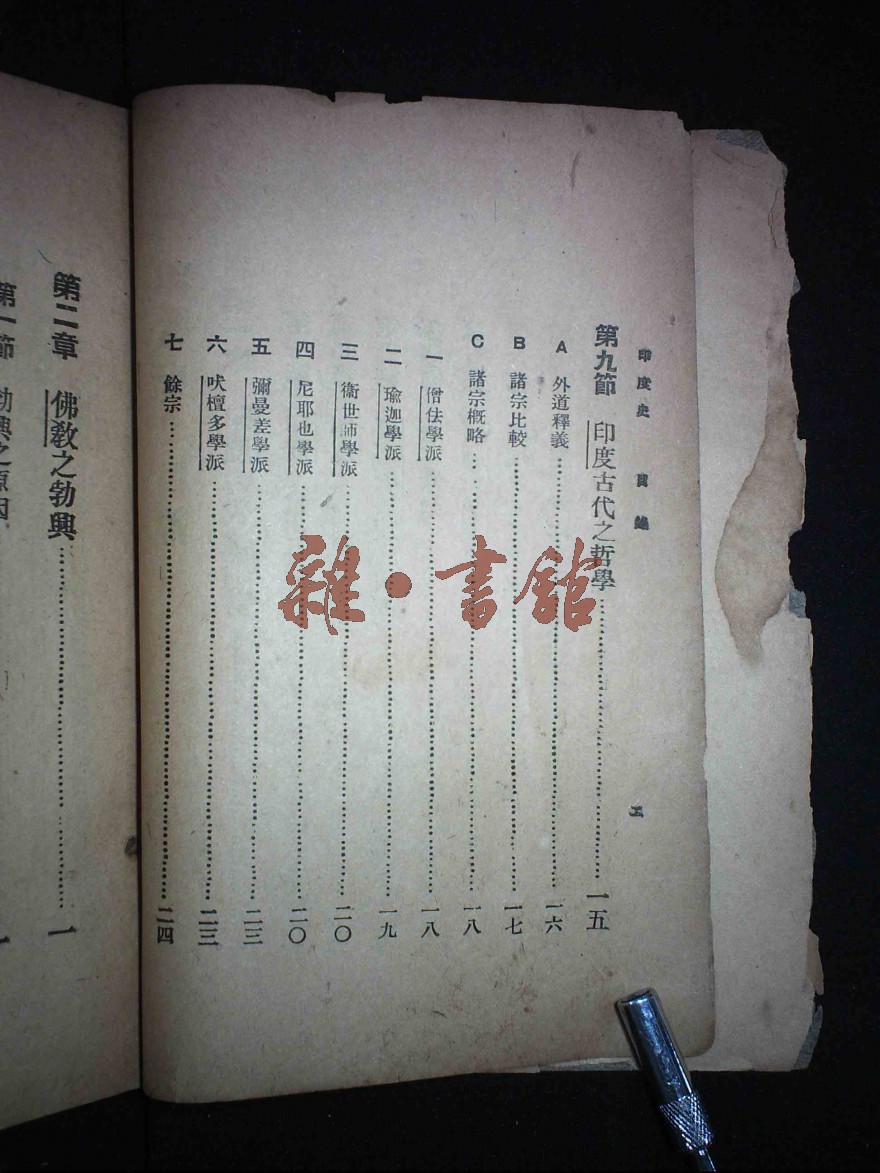 印度史 目錄
五
第九節 印度古代之哲學……一五
A 外道釋義……一六
B 諸宗比較……一七
C 諸宗概略……一八
一 僧佉學派……一八
二 瑜迦學派……一九
三 衞世師學派……二〇
四 尼耶也學派……二〇
五 彌曼差學派……二三
六 吠檀多學派……二三
七 餘宗……二四
第二章 佛敎之勃興……一
第一節 勃興之原因
雜·書館